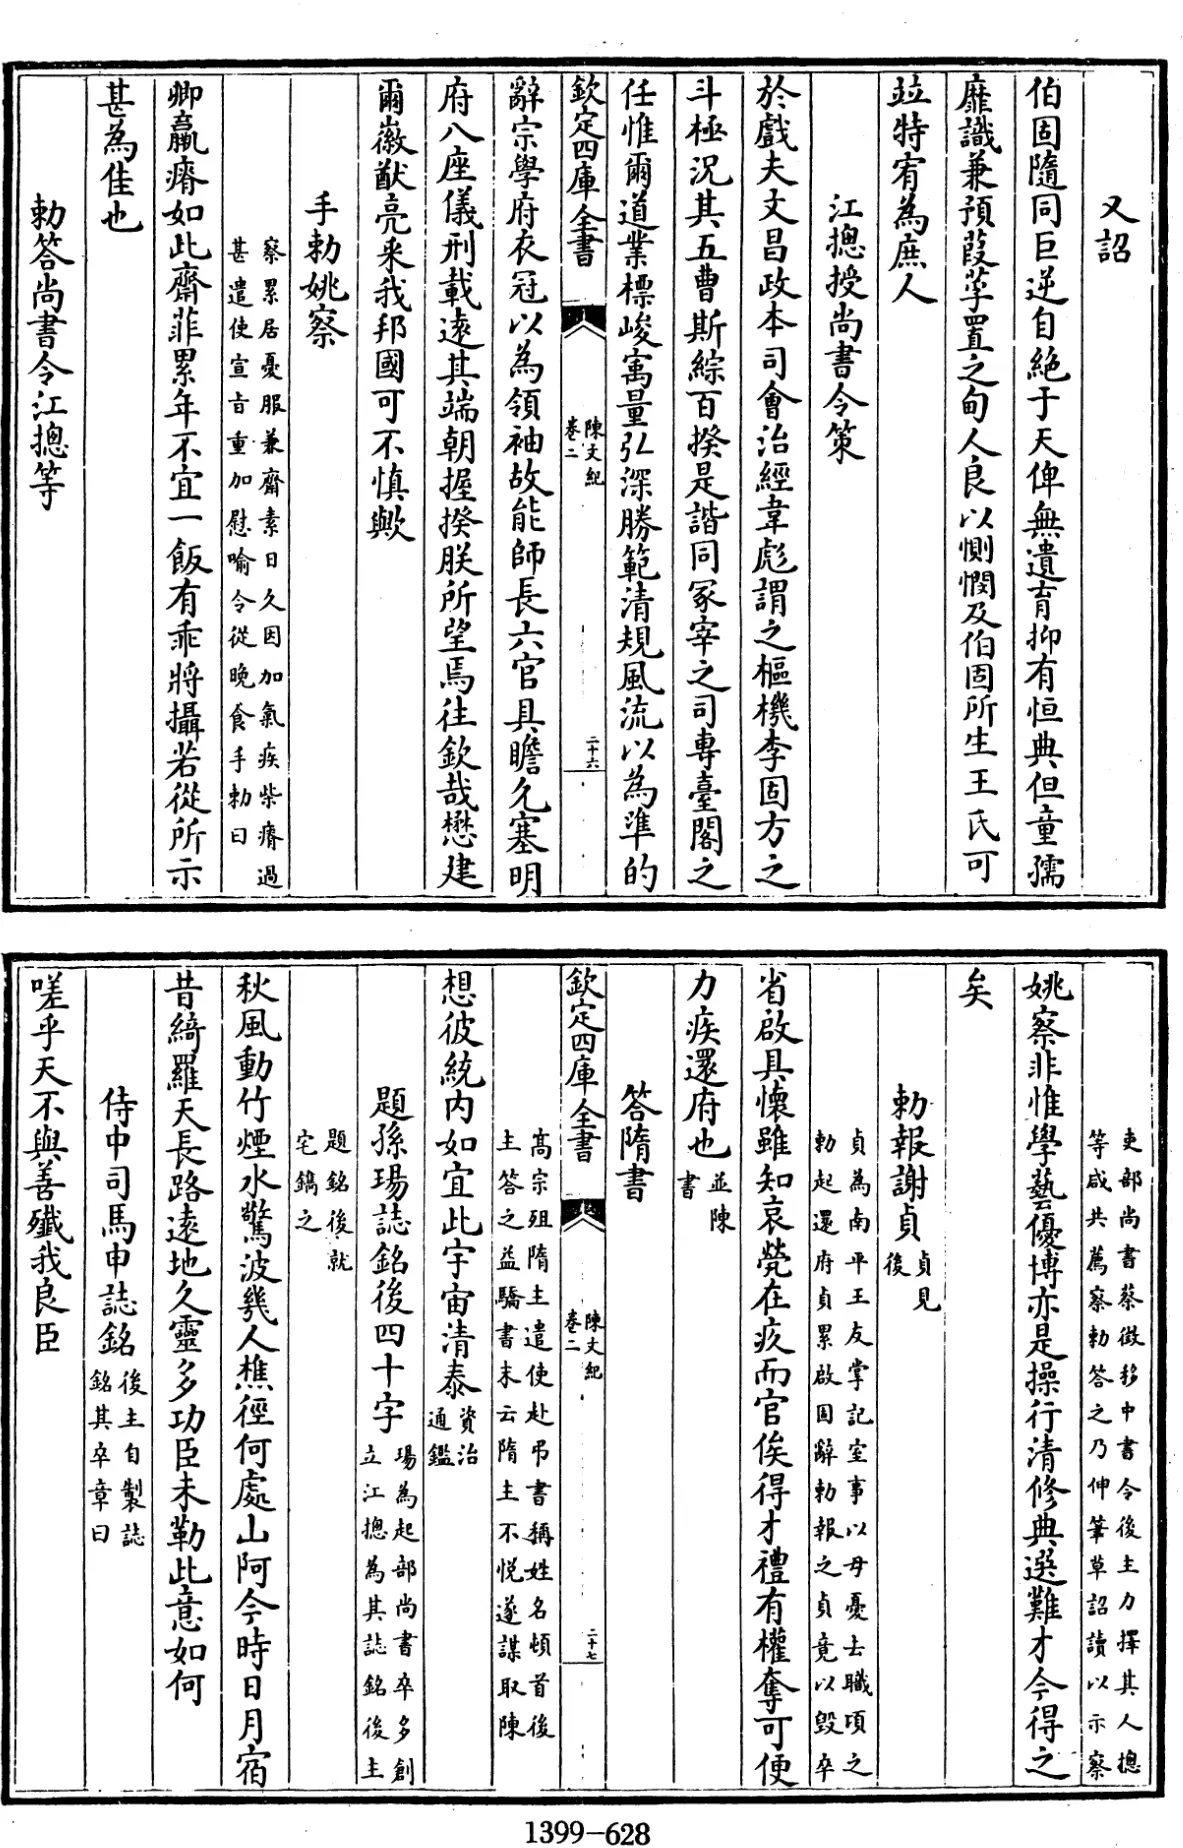 又詔
伯固隨同巨逆自絶于天俾無遺育抑有恒典但童孺
靡識兼預葭莩置之甸人良以惻憫及伯固所生王氏可
竝特宥為庶人
江摠授尚書令策
於戲夫文昌政本司會治經韋彪謂之樞機李固方之
斗極況其五曹斯綜百揆是諧同冢宰之司專臺閣之
任惟爾道業標峻㝢量弘深勝範清規風流以為準的
欽定四庫全書
陳文紀
卷二
二十六
辭宗學府衣冠以為領袖故能師長六官具瞻允塞明
府八座儀刑載遠其端朝握揆朕所望焉往欽哉懋建
爾徽猷亮采我邦國可不慎歟
手勅姚察
察累居憂服兼齋素日久因加氣疾柴瘠過
甚遣使宣旨重加慰喻令從晚食手勅曰
卿羸瘠如此齋菲累年不宜一飯有乖將攝若從所示
甚為佳也
勅答尚書令江摠等
吏部尚書蔡徵移中書令後主力擇其人摠
等咸共薦察勅答之乃伸筆草詔讀以示察
姚察非惟學藝優博亦是操行清修典選難才今得之
矣
勅報謝貞
貞見
後
貞為南平王友掌記室事以母憂去職頃之
勅起還府貞累啟固辭勅報之貞竟以毁卒
省啟具懷雖知哀煢在疚而官俟得才禮有權奪可便
力疾還府也
並陳
書
答隋書
欽定四庫全書
陳文紀
卷二
二十七
髙宗殂隋主遣使赴弔書稱姓名頓首後
主答之益驕書末云隋主不悦遂謀取陳
想彼統内如宜此宇宙清泰
資治
通鑑
題孫瑒誌銘後四十字
瑒為起部尚書卒多創
立江摠為其誌銘後主
題銘後就
宅鐫之
秋風動竹煙水驚波幾人樵徑何處山阿今時日月宿
昔綺羅天長路遠地久靈多功臣未勒此意如何
侍中司馬申誌銘
後主自製誌
銘其卒章曰
嗟乎天不與善殲我良臣
1399-628